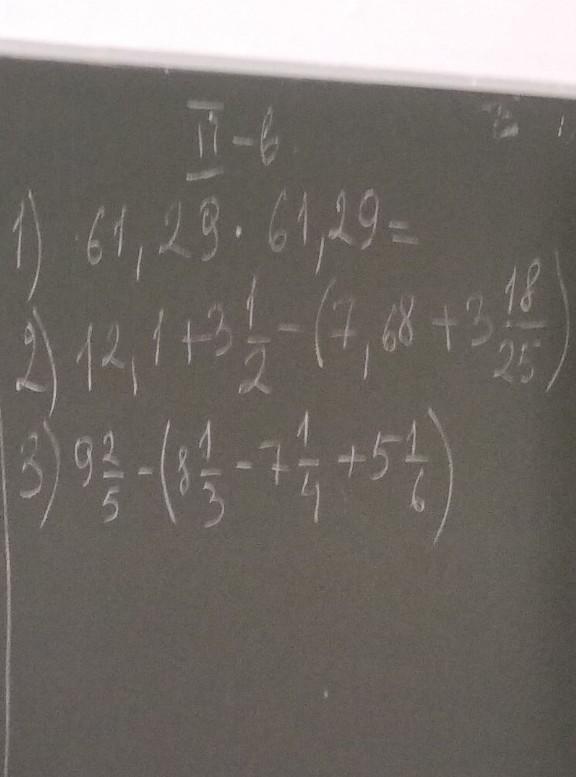 II - в
1) 61,29 · 61,29 =
2) 12,1 + 3 1/2 - (7,68 + 3 18/25)
3) 9 2/5 - (8 1/3 - 7 1/4 + 5 1/6)